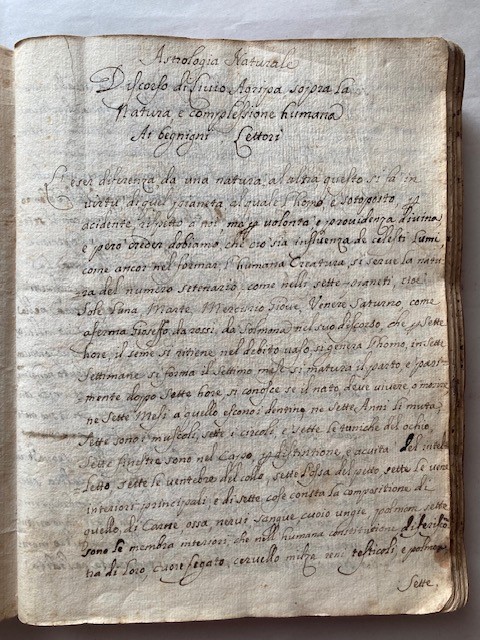 Astrologia Naturale
Discorso di Livio Agripa sopra la
Natura, e complessione humana
Ai begnigni Lettori
L'eser diferenza da una natura al altra questo si fa in
virtù di quel pianeta al quale l'homo è sotoposto, p
acidente rispeto a noi ma p volontà e providenza divina
e però creder dobiamo, che ciò sia influenza de celesti Lumi,
come ancor nel formar l'humana Creatura si serve la natu-
-ra del numero setenario come nelli sette pianeti, cioè
Sole Luna Marte, Mercurio Giove, Venere Saturno, come
aferma Gioseffo da rossi, da Sulmona nel suo discorso, che p Sette
hore, il seme si ritiene nel debito vaso si genera l'homo, in sette
Settimane si forma il Settimo mese si matura il parto, e pari-
-mente dopo Sette hore si conosce se il nato deve vivere, o morire
ne Sette Mesi a quello escono i dentini ne Sette Anni li muta,
Sette sono i muscoli, sette i circoli, e sette le tuniche del ochio,
Sette finestre sono nel Capo, p destintione, e acuità del intel
-letto sette le vertebre del collo, sette l'ossa del petto sette le vene
interiori principali, e di sette cose consta la compositione di
quello, di Carne ossa nervi, sangue cuoio ungie, polmon sette
sono le membra interiori, che nell humana constitutione
di loro, cuore fegato, cervello milza reni testicoli, e polmone
Sette